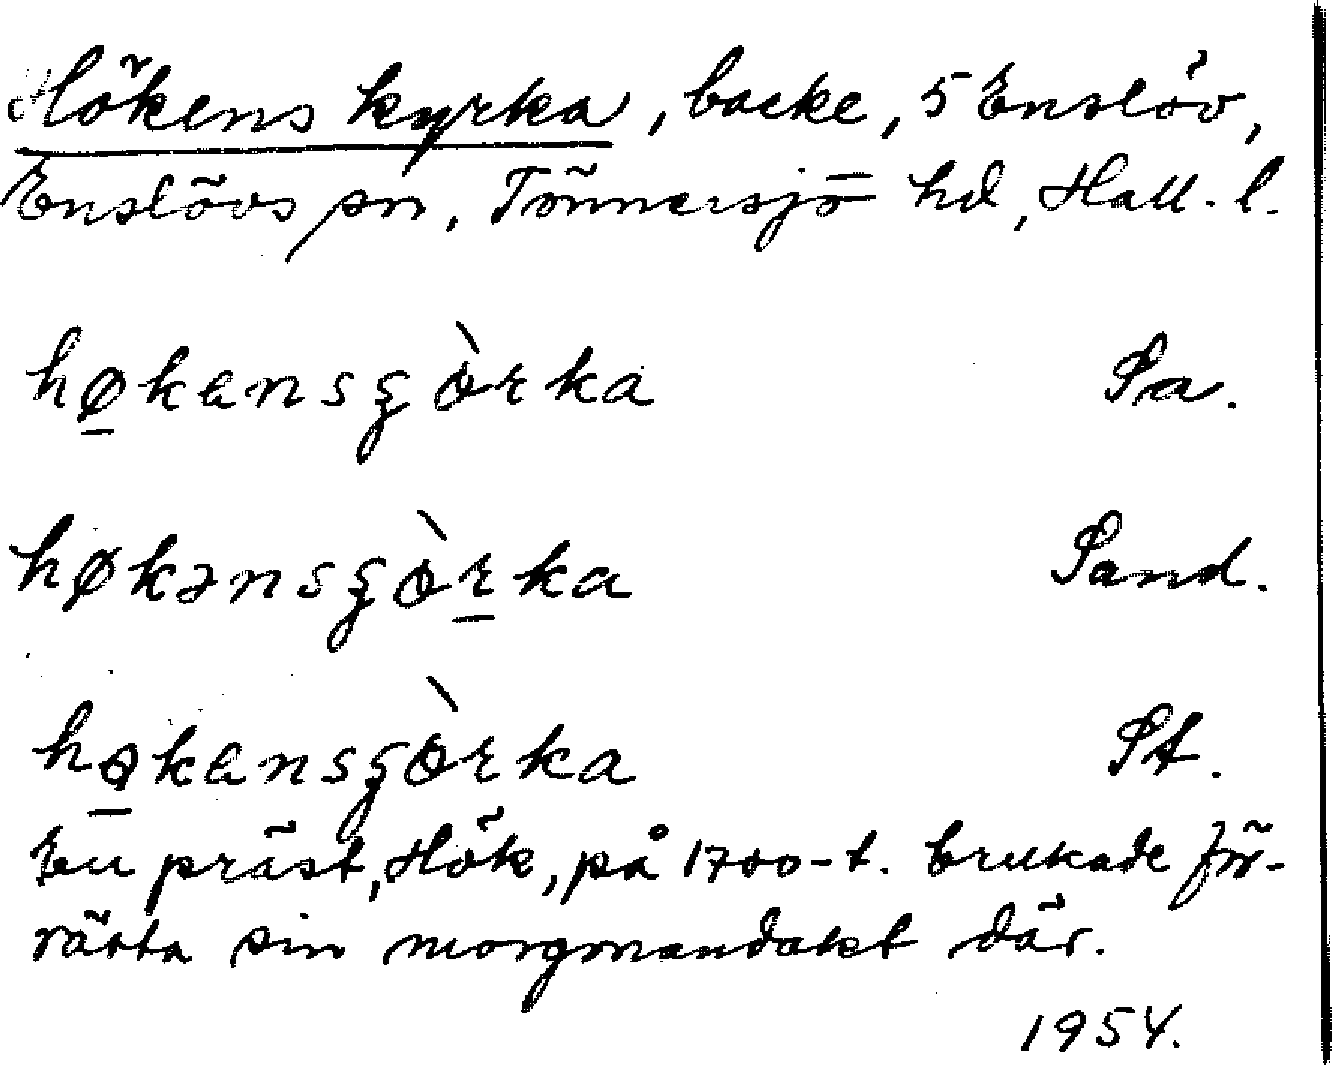 Hökens kyrka, backe, 5 Enslöv,
Enslövs sn, Tönnersjö hd, Hall. l.
hø̱kansʂɔ̀rka Pa.
høkənsʂɔ̀ṟka Sand.
ho̱kansʂɔ̀rka St.
En präst, Hök, på 1700-t. brukade för-
rätta sin morgonandakt där.
1954.